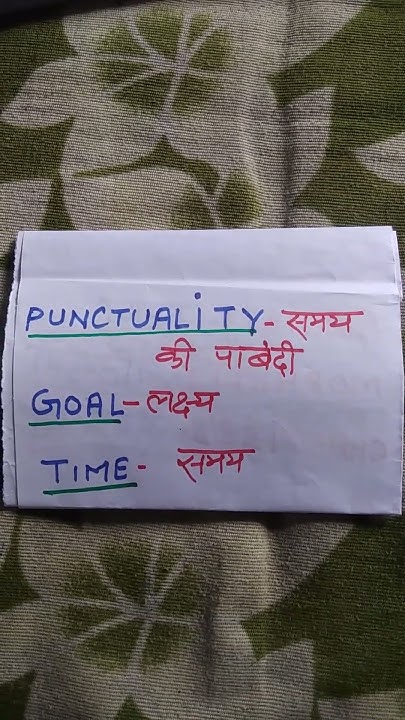 PUNCTUALiTY - समय
की पाबंदी
GOAL - लक्ष्य
TIME - समय